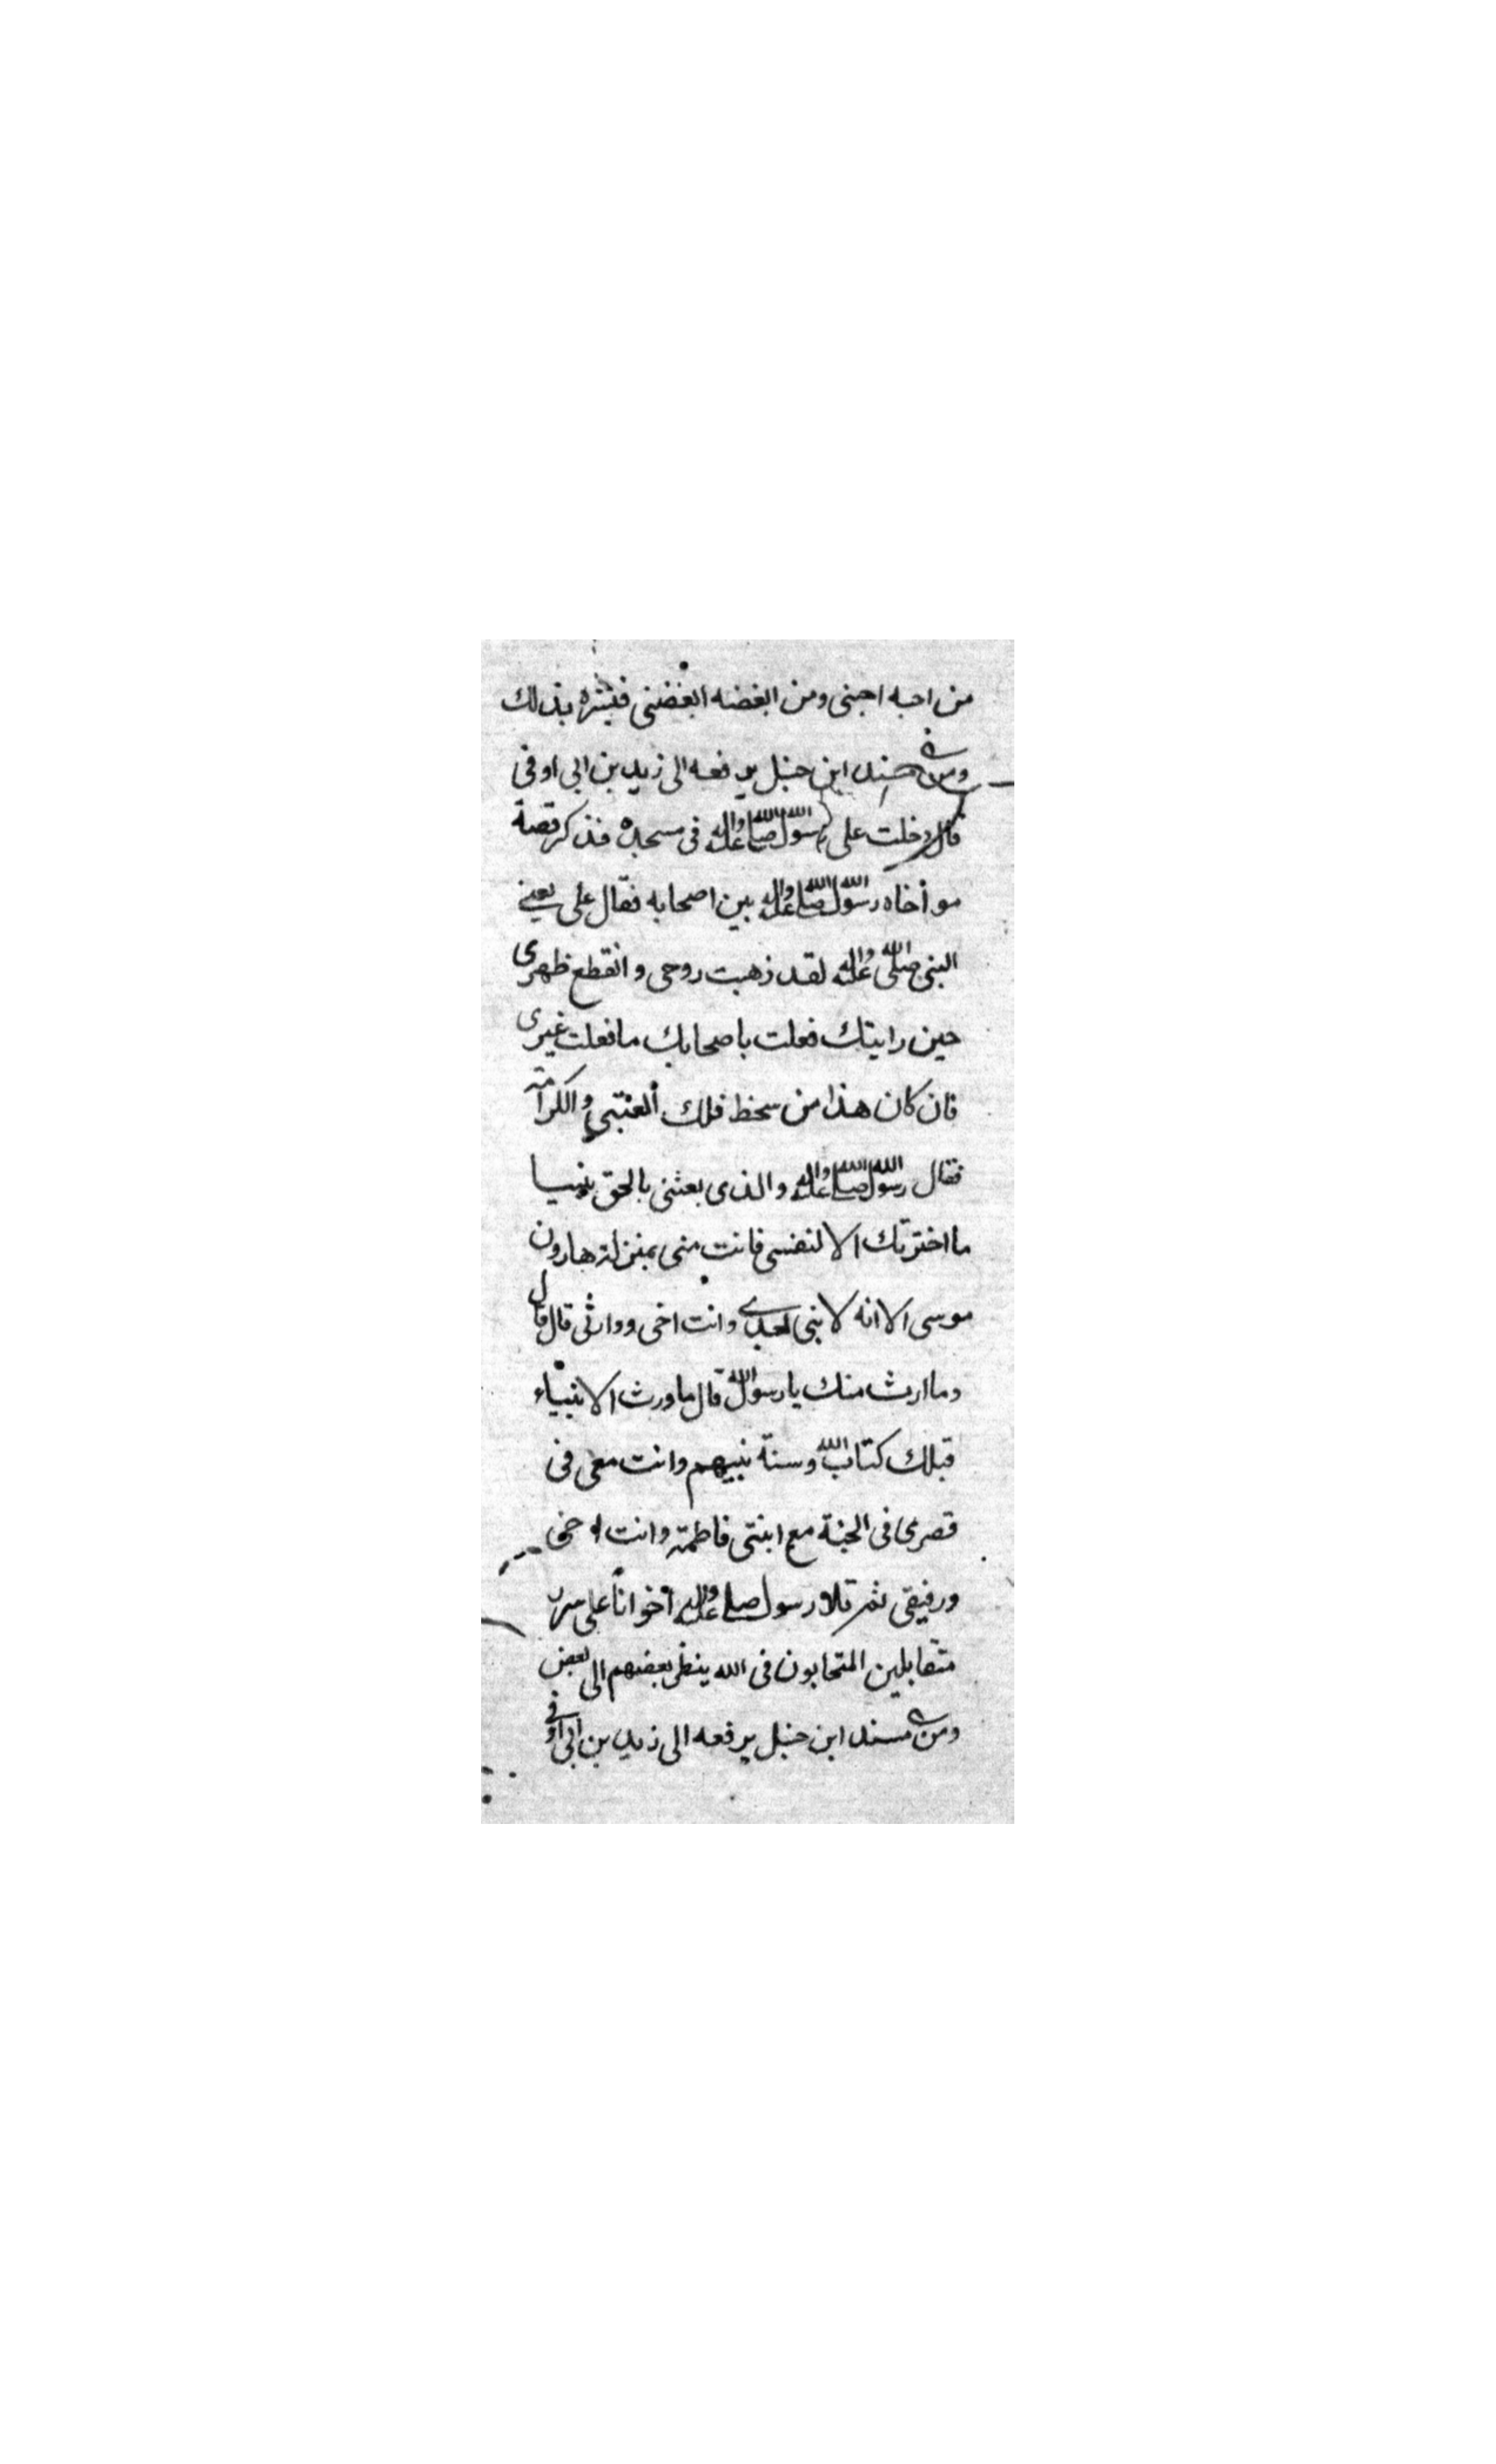 من احبه احبنى ومن ابغضه ابغضنى فبشره بذلك
ومن مسند ابن حنبل يرفعه الى زيد بن ابى اوفى
قال دخلت على رسول الله صلى الله عليه واله فى مسجده فذكر قصة
مواخاه رسول الله صلى الله عليه واله بين اصحابه فقال على يعنى
النبى صلى الله عليه واله لقد ذهبت روحى وانقطع ظهرى
حين رايتك فعلت باصحابك ما فعلت غيرى
فان كان هذا من سخط فلك العتبى والكرامة
فقال رسول الله صلى الله عليه واله والذى بعثنى بالحق نبيا
ما اخترتك الا لنفسى فانت منى بمنزلة هارون
موسى الا انه لا نبى بعدى وانت اخى ووارثى قال قال
وما ارث منك يا رسول الله قال ما ورث الانبياء
قبلك كتاب الله وسنة نبيهم وانت معى فى
قصرى فى الجنة مع ابنتى فاطمة وانت اخى
ورفيقى ثم تلا رسول صلى عليه واله اخوانا على سرر
متقابلين المتحابون فى الله ينظر بعضهم الى بعض
ومن مسند ابن حنبل يرفعه الى زيد بن ابى اوفى